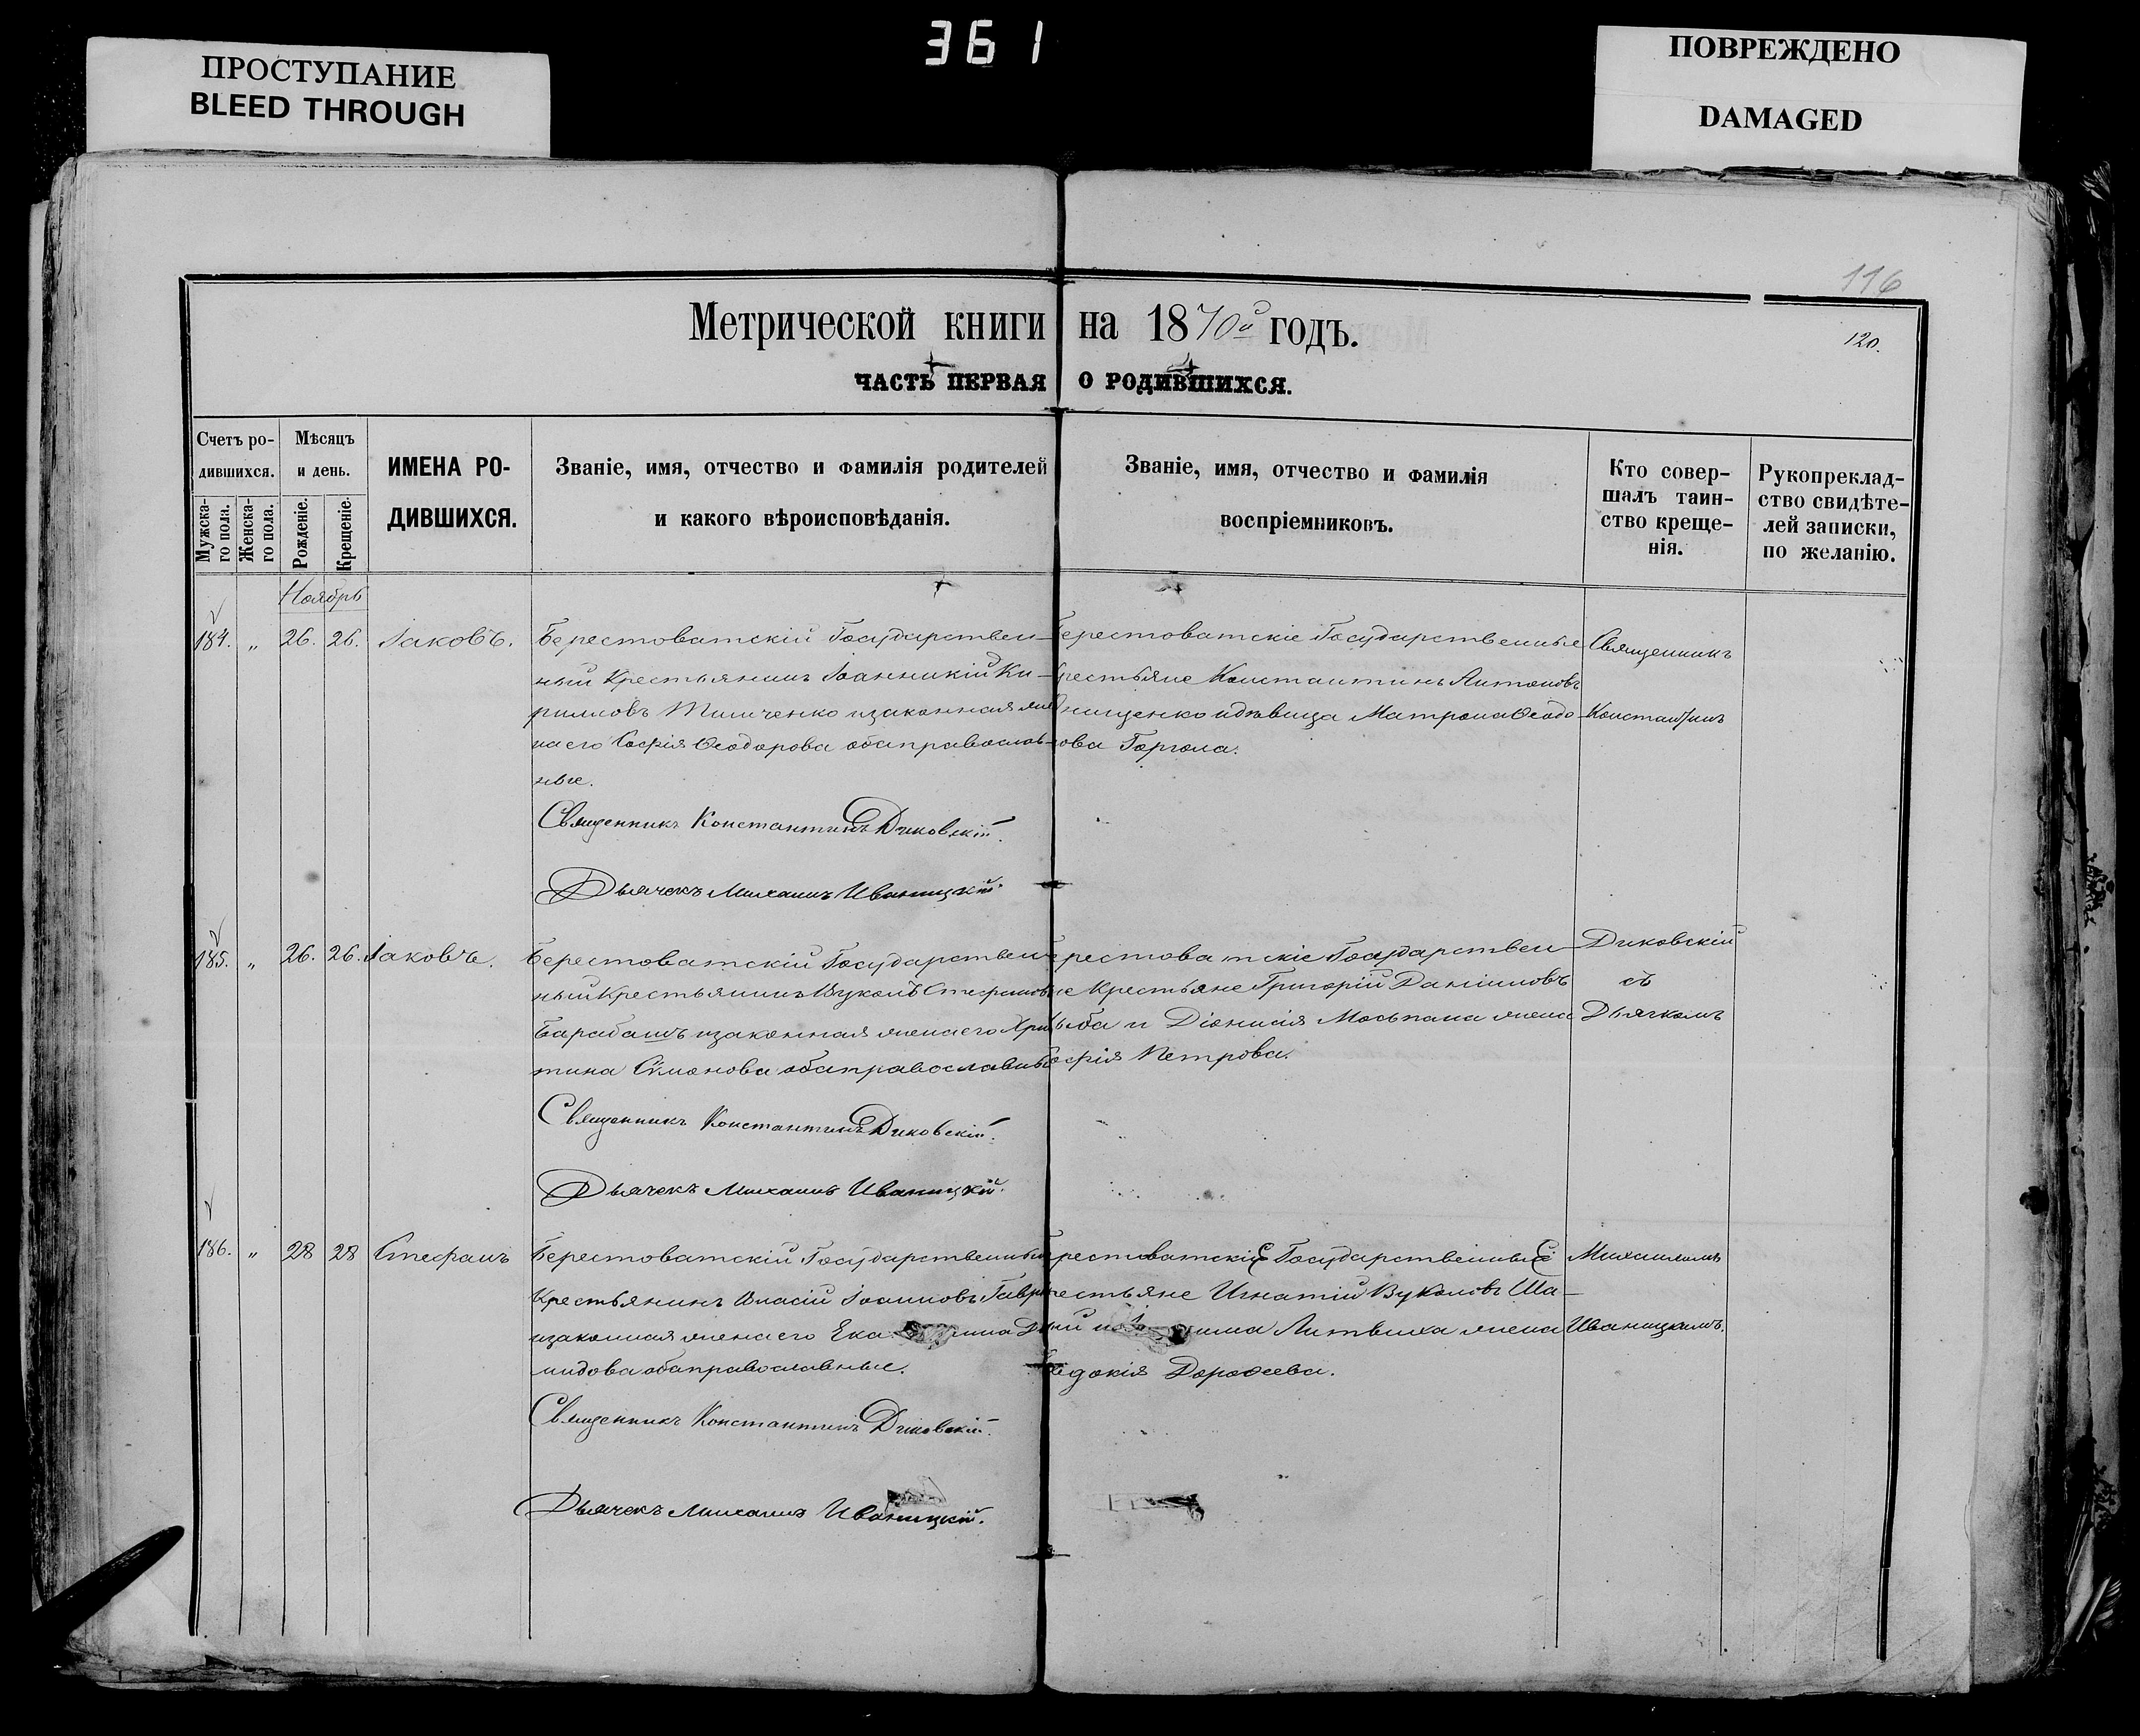 361
ПРОСТУПАНИЕ
BLEED THROUGH
ПОВРЕЖДЕНО
DAMAGED
116
120.
Метрической книги на 1870й годъ.
ЧАСТЬ ПЕРВАЯ О РОДИВШИХСЯ.
Счетъ ро-
дившихся.
Мужска-
го пола.
Женска-
го пола.
Мѣсяцъ
и день.
Рожденіе.
Крещеніе.
ИМЕНА РО-
ДИВШИХСЯ.
Званіе, имя, отчество и фамилія родителей
и какого вѣроисповѣданія.
Званіе, имя, отчество и фамилія
воспріемниковъ.
Кто совер-
шалъ таин-
ство креще-
нія.
Рукопреклад-
ство свидѣте-
лей записки,
по желанію.
Ноябрь
184. „ 26. 26. Іаковъ.
Берестоватскій Государствен-
ный Крестьянинъ Іоанникій Ки-
рилловъ Тимченко изаконная же
на его Софія Ѳеодорова обаправослав-
ные.
Священникъ Константинъ Диковскій.
Дьячекъ Михаилъ Иваницкій.
Берестоватскіе Государственные
Крестьяне Константинъ Антоновъ
Онищенко идѣвица Матрона Ѳеодо-
рова Горгола.
Священникъ
Константинъ
185. „ 26. 26. Іаковъ.
Берестоватскій Государствен
ный Крестьянинъ Вуколъ Стефановъ
Барабашъ изаконная женаего Хрис
тина Симонова обаправославные
Священникъ Константинъ Диковскій.
Дьячекъ Михаилъ Иваницкій.
Берестоватскіе Государствен-
ные Крестьяне Григорій Даніиловъ
и Діонисія Мосьпана жена
Софія Петрова.
Диковскій
съ
Дьячкомъ
186. „ 28 28 Стефанъ
Берестоватскій Государственный
Крестьянинъ Власій Іоанновъ
изаконная женаего Екатерина
мидова обаправославные.
Священникъ Константинъ Диковскій.
Дьячекъ Михаилъ Иваницкій.
Берестоватскіе Государственные
Крестьяне Игнатій Вуколовъ Ша-
Литвиха жена
Евдокія Дороѳеева.
Михаиломъ
Иваницкимъ.